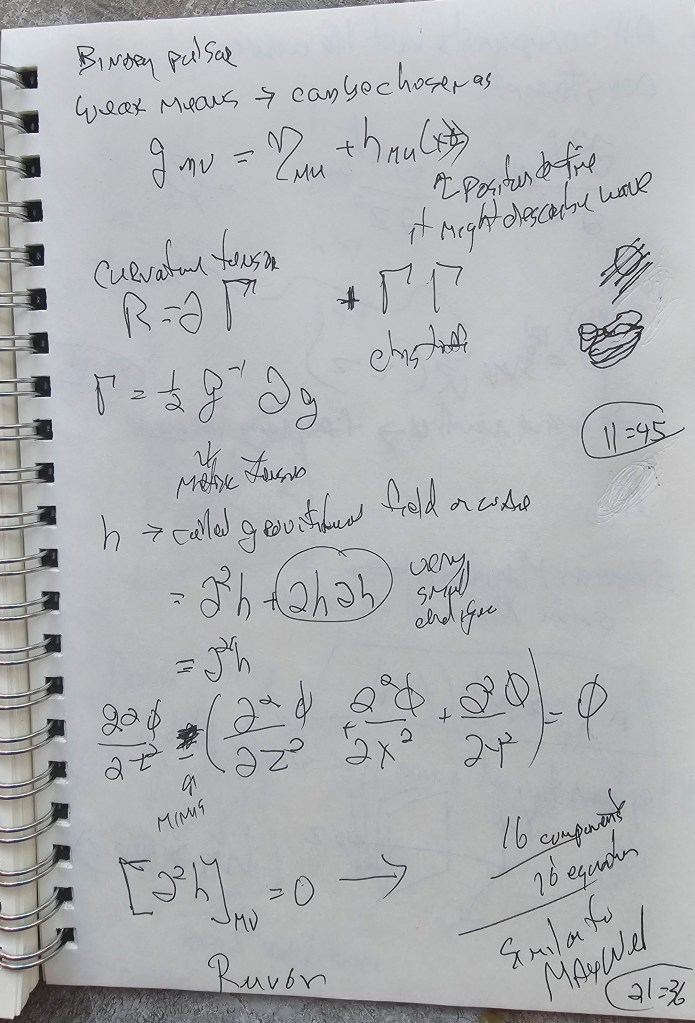 Binary pulsar
weak means → can be chosen as
g_mν = η_μν + h_μν(x)
↑ position & time
it might describe wave
Curvature tensor
R = ∂ Γ + Γ Γ
Γ = 1/2 g⁻¹ ∂g
11=45
↓
metric tensor
h → called gravitational field or wave
= ∂²h + ∂h∂h very small change
= ∂²h
∂²φ/∂t² - (∂²φ/∂z² + ∂²φ/∂x² + ∂²φ/∂y²) = φ
↑
MINUS
16 components
16 equation
[∂²h]_μν = 0 →
Similar to
MAXWell
21=36